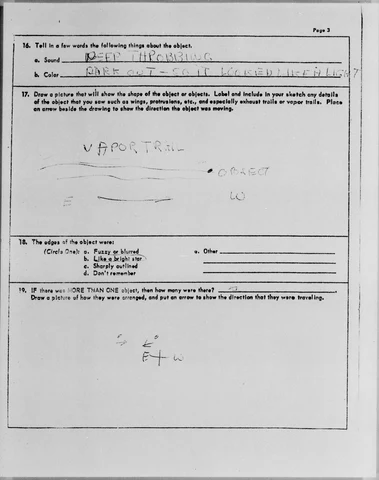 Page 3
16. Tell in a few words the following things about the object.
a. Sound DEEP THROBBING
b. Color DARK OUT - SO IT LOOKED LIKE A LIGHT
17. Draw a picture that will show the shape of the object or objects. Label and include in your sketch any details
of the object that you saw such as wings, protrusions, etc., and especially exhaust trails or vapor trails. Place
an arrow beside the drawing to show the direction the object was moving.
VAPOR TRAIL
OBJECT
E W
18. The edges of the object were:
(Circle One): a. Fuzzy or blurred e. Other
b. Like a bright star
c. Sharply outlined
d. Don't remember
19. IF there was MORE THAN ONE object, then how many were there?
Draw a picture of how they were arranged, and put an arrow to show the direction that they were traveling.
E W